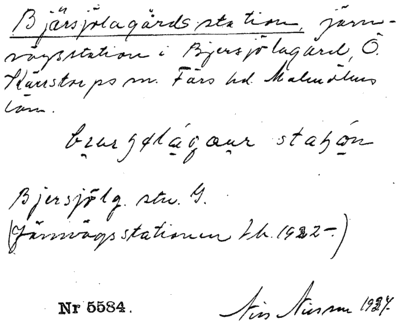 Bjärsjölagårds station, järn-
vägsstation i Bjersjölagård, Ö.
Kärrstorps sn. Färs hd. Malmöhus
län.
stahón
Bjersjölg. stn. G.
(Järnvägsstationen 1922-)
Nr 5584.
Nils Nilsson 1927.